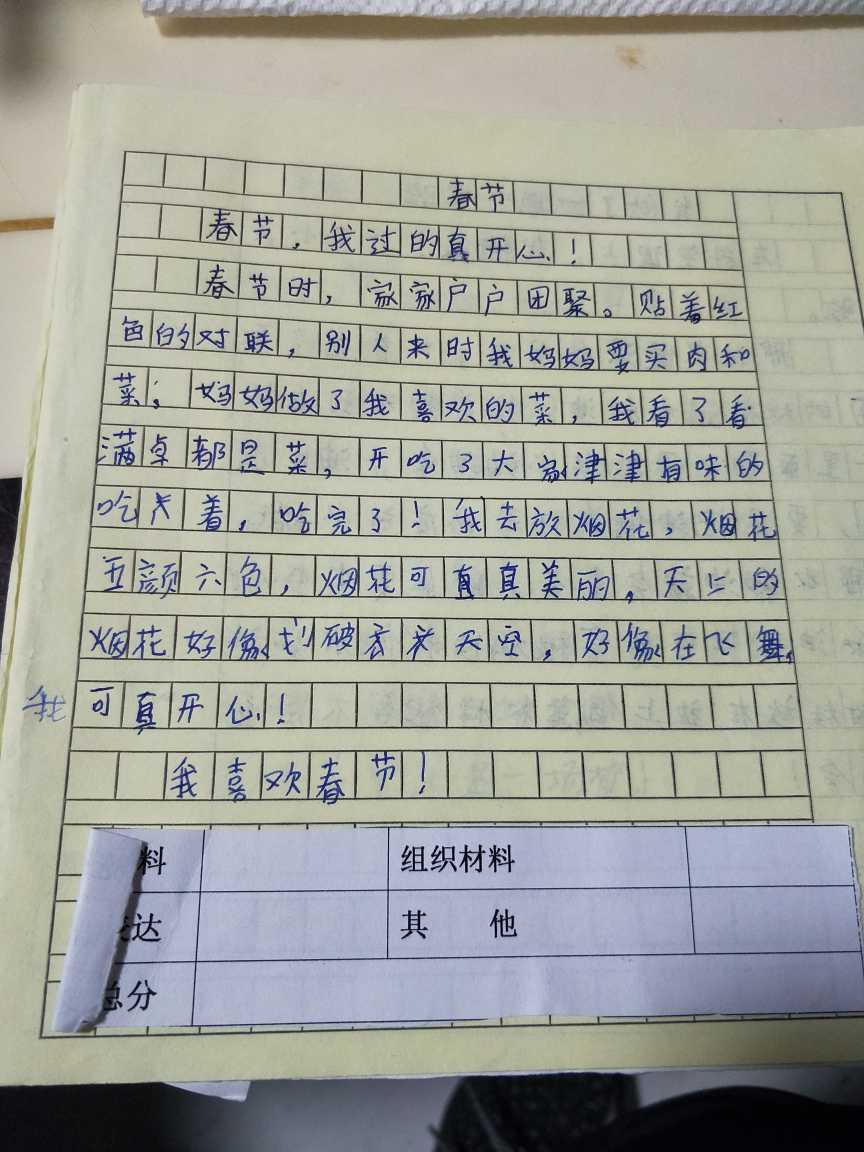 春节
春节，我过的真开心！
春节时，家家户户团聚。贴着红
色的对联，别人来时我妈妈要买肉和
菜；妈妈做了我喜欢的菜，我看了看
满卓都是菜，开吃了大家津津有味的
吃着，吃完了！我去放烟花，烟花
五颜六色，烟花可真真美丽，天上的
烟花好像划破天空，好像在飞舞，
我可真开心！
我喜欢春节！
料 组织材料
达 其 他
总分